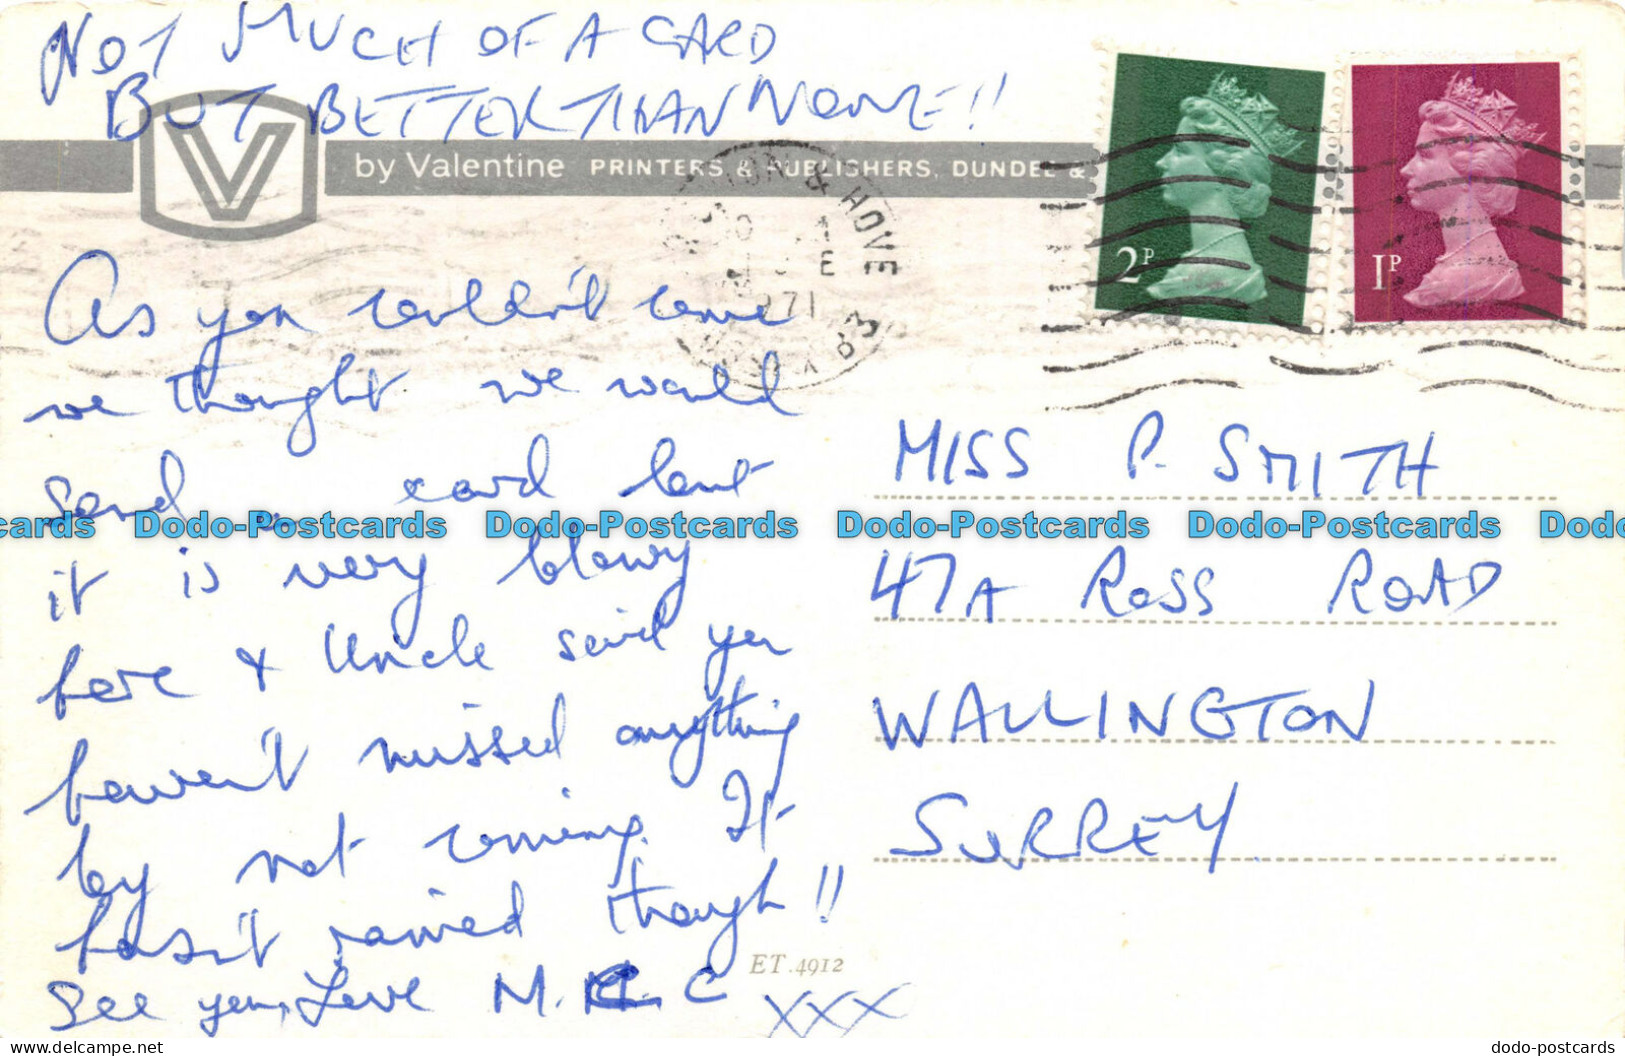 NOT MUCH OF A CARD
BUT BETTER THAN NONE!!
V by Valentine PRINTERS & PUBLISHERS, DUNDEE &
& HOVE
1971
2P
1P
As you couldn't come
we thought we would
send a card but
it is very blowy
here & Uncle said you
haven't missed anything
by not coming. It
hasn't rained though!!
See you, Love M. C
xxx
ET.4912
MISS P. SMITH
47A ROSS ROAD
WALLINGTON
SURREY.
cards Dodo-Postcards Dodo-Postcards Dodo-Postcards Dodo-Postcards Dodo
www.delcampe.net dodo-postcards